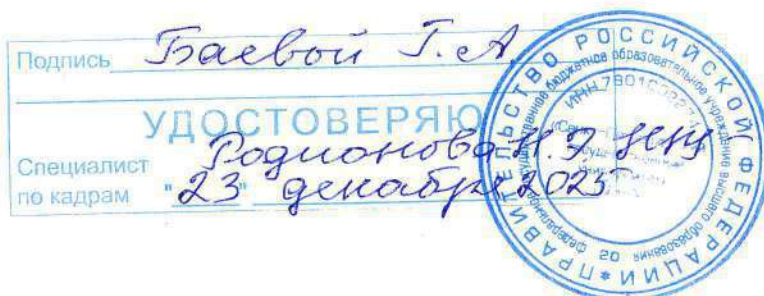 Подпись Баевой Г.А.
УДОСТОВЕРЯЮ
Специалист
по кадрам
Родионова
"23" декабря 2025
ПРАВИТЕЛЬСТВО РОССИЙСКОЙ ФЕДЕРАЦИИ
федеральное государственное бюджетное образовательное учреждение высшего образования
ИНН
20